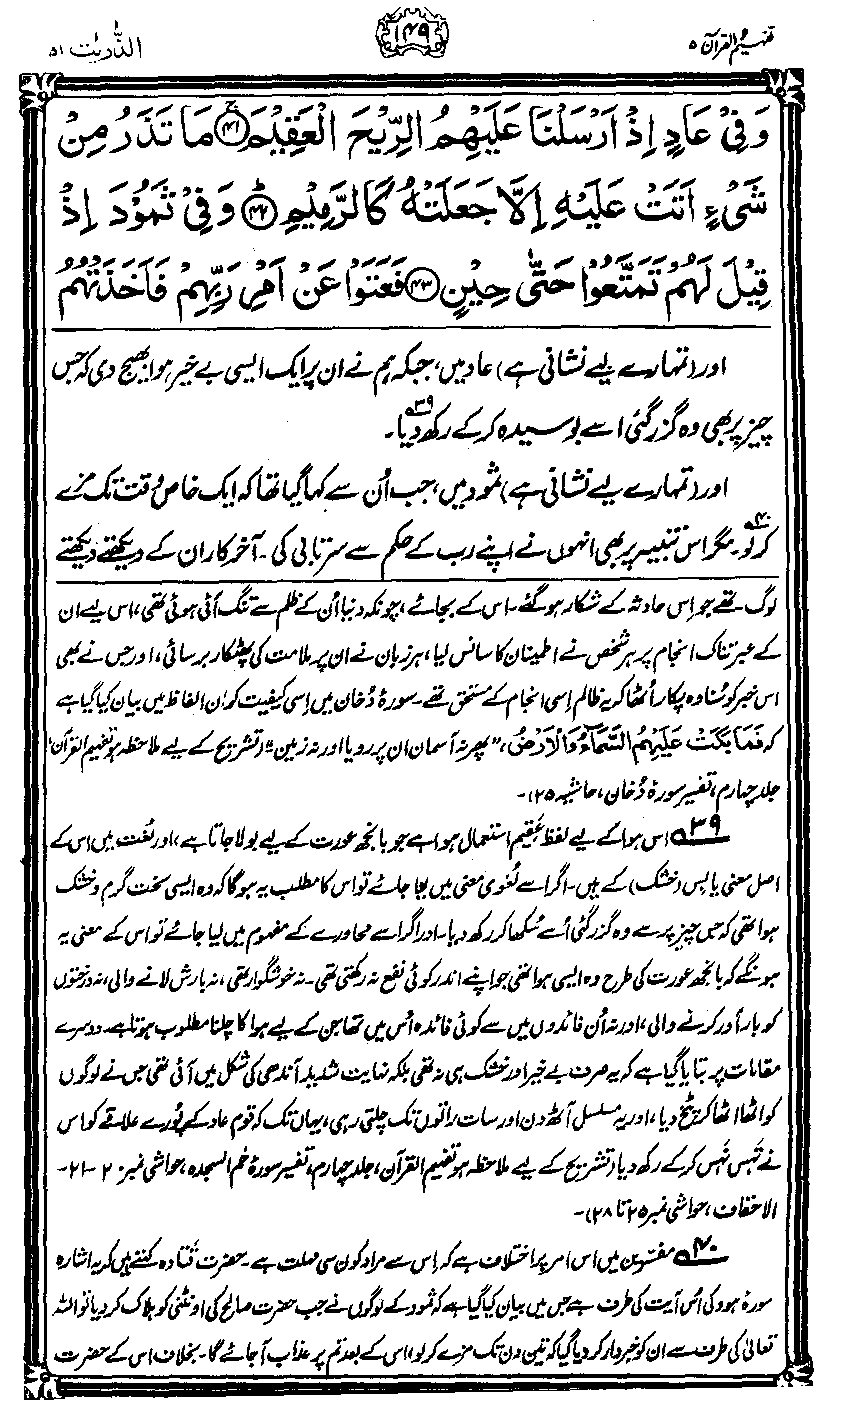 تفہیم القرآن ۵
۱۴۹
الذّٰریٰت ۵۱
وَفِیْ عَادٍ اِذْ اَرْسَلْنَا عَلَیْهِمُ الرِّیْحَ الْعَقِیْمَ ﴿۴۱﴾ مَا تَذَرُ مِنْ
شَیْءٍ اَتَتْ عَلَیْهِ اِلَّا جَعَلَتْهُ کَالرَّمِیْمِ ﴿۴۲﴾ وَفِیْ ثَمُوْدَ اِذْ
قِیْلَ لَهُمْ تَمَتَّعُوْا حَتّٰی حِیْنٍ ﴿۴۳﴾ فَعَتَوْا عَنْ اَمْرِ رَبِّهِمْ فَاَخَذَتْهُمُ
اور (تمہارے لیے نشانی ہے) عاد میں، جبکہ ہم نے ان پر ایک ایسی بے خیر ہوا بھیج دی کہ جس
چیز پر بھی وہ گزر گئی اسے بوسیدہ کر کے رکھ دیا۳۹۔
اور (تمہارے لیے نشانی ہے) ثمود میں، جب اُن سے کہا گیا تھا کہ ایک خاص وقت تک مزے
کر لو۴۰۔ مگر اس تنبیہ پر بھی انہوں نے اپنے رب کے حکم سے سرتابی کی۔ آخر کار ان کے دیکھتے دیکھتے
لوگ تھے جو اِس حادثہ کے شکار ہو گئے۔ اس کے بجائے، چونکہ دنیا اُن کے ظلم سے تنگ آئی ہوئی تھی، اس لیے ان
کے عبرتناک انجام پر ہر شخص نے اطمینان کا سانس لیا، ہر زبان نے ان پر ملامت کی پھٹکار برسائی، اور جس نے بھی
اس خبر کو سُنا وہ پکار اُٹھا کہ یہ ظالم اِسی انجام کے مستحق تھے۔ سورۂ دُخان میں اِسی کیفیت کو اِن الفاظ میں بیان کیا گیا ہے
کہ فَمَا بَکَتْ عَلَیْهِمُ السَّمَآءُ وَالْاَرْضُ، "پھر نہ آسمان ان پر رویا اور نہ زمین" (تشریح کے لیے ملاحظہ ہو تفہیم القرآن،
جلد چہارم، تفسیر سورۂ دُخان، حاشیہ ۲۵)۔
۳۹ اس ہوا کے لیے لفظ عَقِیم استعمال ہوا ہے جو بانجھ عورت کے لیے بولا جاتا ہے، اور لُغت میں اس کے
اصل معنی یابِس (خشک) کے ہیں۔ اگر اسے لُغوی معنی میں لیا جائے تو اس کا مطلب یہ ہوگا کہ وہ ایسی سخت گرم و خشک
ہوا تھی کہ جس چیز پر سے وہ گزر گئی اُسے سُکھا کر رکھ دیا۔ اور اگر اسے محاورے کے مفہوم میں لیا جائے تو اس کے معنی یہ
ہونگے کہ بانجھ عورت کی طرح وہ ایسی ہوا تھی جو اپنے اندر کوئی نفع نہ رکھتی تھی۔ نہ خوشگوار تھی، نہ بارش لانے والی، نہ درختوں
کو بار آور کرنے والی، اور نہ اُن فائدوں میں سے کوئی فائدہ اُس میں تھا جن کے لیے ہوا کا چلنا مطلوب ہوتا ہے۔ دوسرے
مقامات پر بتایا گیا ہے کہ یہ صرف بے خیر اور خشک ہی نہ تھی بلکہ نہایت شدید آندھی کی شکل میں آئی تھی جس نے لوگوں
کو اٹھا اٹھا کر پٹخ دیا، اور یہ مسلسل آٹھ دن اور سات راتوں تک چلتی رہی، یہاں تک کہ قوم عاد کے پُورے علاقے کو اس
نے تَہس نَہس کر کے رکھ دیا (تشریح کے لیے ملاحظہ ہو تفہیم القرآن، جلد چہارم، تفسیر سورۂ حٰم السجدہ، حواشی نمبر ۲۰-۲۱۔
الاحقاف، حواشی نمبر ۲۵ تا ۲۸)۔
۴۰ مفسّرین میں اس امر پر اختلاف ہے کہ اِس سے مراد کون سی مہلت ہے۔ حضرت قَتادہ کہتے ہیں کہ یہ اشارہ
سورۂ ہود کی اُس آیت کی طرف ہے جس میں بیان کیا گیا ہے کہ ثمود کے لوگوں نے جب حضرت صالح کی اونٹنی کو ہلاک کر دیا تو اللہ
تعالیٰ کی طرف سے ان کو خبردار کر دیا گیا کہ تین دن تک مزے کر لو، اس کے بعد تم پر عذاب آ جائے گا۔ بخلاف اس کے حضرت